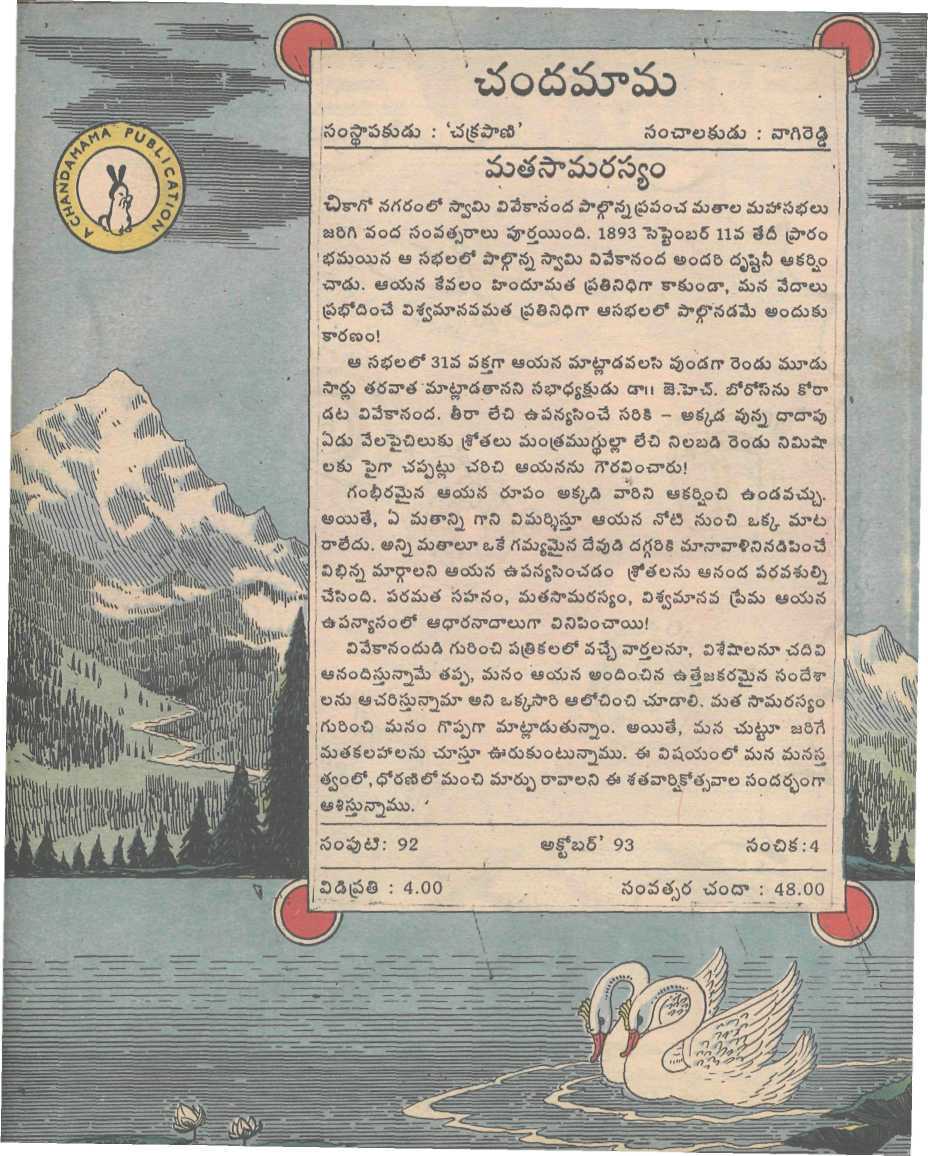 A CHANDAMAMA PUBLICATION
చందమామ
సంస్థాపకుడు : ‘చక్రపాణి’ సంచాలకుడు : నాగిరెడ్డి
మతసామరస్యం
చికాగో నగరంలో స్వామి వివేకానంద పాల్గొన్న ప్రపంచ మతాల మహాసభలు
జరిగి వంద సంవత్సరాలు పూర్తయింది. 1893 సెప్టెంబర్ 11వ తేదీ ప్రారం
భమయిన ఆ సభలలో పాల్గొన్న స్వామి వివేకానంద అందరి దృష్టినీ ఆకర్షిం
చాడు. ఆయన కేవలం హిందూమత ప్రతినిధిగా కాకుండా, మన వేదాలు
ప్రభోదించే విశ్వమానవమత ప్రతినిధిగా ఆసభలలో పాల్గొనడమే అందుకు
కారణం!
ఆ సభలలో 31వ వక్తగా ఆయన మాట్లాడవలసి వుండగా రెండు మూడు
సార్లు తరవాత మాట్లాడతానని సభాధ్యక్షుడు డా॥ జె.హెచ్. బోరోస్‌ను కోరా
డట వివేకానంద. తీరా లేచి ఉపన్యసించే సరికి – అక్కడ వున్న దాదాపు
ఏడు వేలపైచిలుకు శ్రోతలు మంత్రముగ్ధుల్లా లేచి నిలబడి రెండు నిమిషా
లకు పైగా చప్పట్లు చరిచి ఆయనను గౌరవించారు!
గంభీరమైన ఆయన రూపం అక్కడి వారిని ఆకర్షించి ఉండవచ్చు.
అయితే, ఏ మతాన్ని గాని విమర్శిస్తూ ఆయన నోటి నుంచి ఒక్క మాట
రాలేదు. అన్ని మతాలూ ఒకే గమ్యమైన దేవుడి దగ్గరికి మానావాళినినడిపించే
విభిన్న మార్గాలని ఆయన ఉపన్యసించడం శ్రోతలను ఆనంద పరవశుల్ని
చేసింది. పరమత సహనం, మతసామరస్యం, విశ్వమానవ ప్రేమ ఆయన
ఉపన్యాసంలో ఆధారనాదాలుగా వినిపించాయి!
వివేకానందుడి గురించి పత్రికలలో వచ్చే వార్తలనూ, విశేషాలనూ చదివి
ఆనందిస్తున్నామే తప్ప, మనం ఆయన అందించిన ఉత్తేజకరమైన సందేశా
లను ఆచరిస్తున్నామా అని ఒక్కసారి ఆలోచించి చూడాలి. మత సామరస్యం
గురించి మనం గొప్పగా మాట్లాడుతున్నాం. అయితే, మన చుట్టూ జరిగే
మతకలహాలను చూస్తూ ఊరుకుంటున్నాము. ఈ విషయంలో మన మనస్త
త్వంలో, ధోరణిలో మంచి మార్పు రావాలని ఈ శతవార్షికోత్సవాల సందర్భంగా
ఆశిస్తున్నాము.
సంపుటి: 92 అక్టోబర్' 93 సంచిక:4
విడిప్రతి : 4.00 సంవత్సర చందా : 48.00